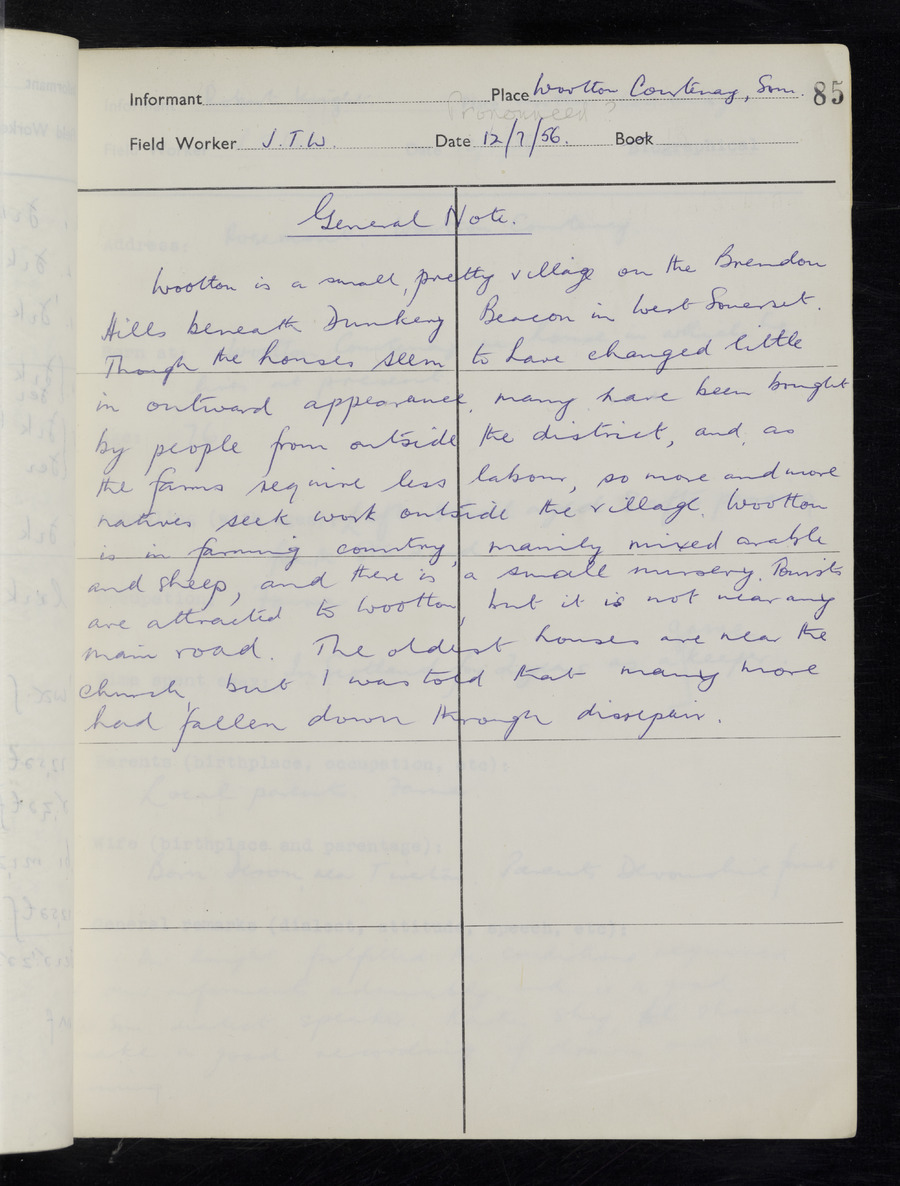 Informant Place Wootton Courtenay, Som. 85
Pronounced?
Field Worker J.T.W. Date 12/7/56. Book
General Note.
Wootton is a small, pretty village on the Brendon
Hills beneath Dunkery Beacon in West Somerset.
Though the houses seem to have changed little
in outward appearance, many have been bought
by people from outside the district, and, as
the farms require less labour, so more and more
natives seek work outside the village. Wootton
is in farming country, mainly mixed arable
and sheep, and there is a small nursery. Tourists
are attracted to Wootton, but it is not near any
main road. The oldest houses are near the
church, but I was told that many more
had fallen down through disrepair.